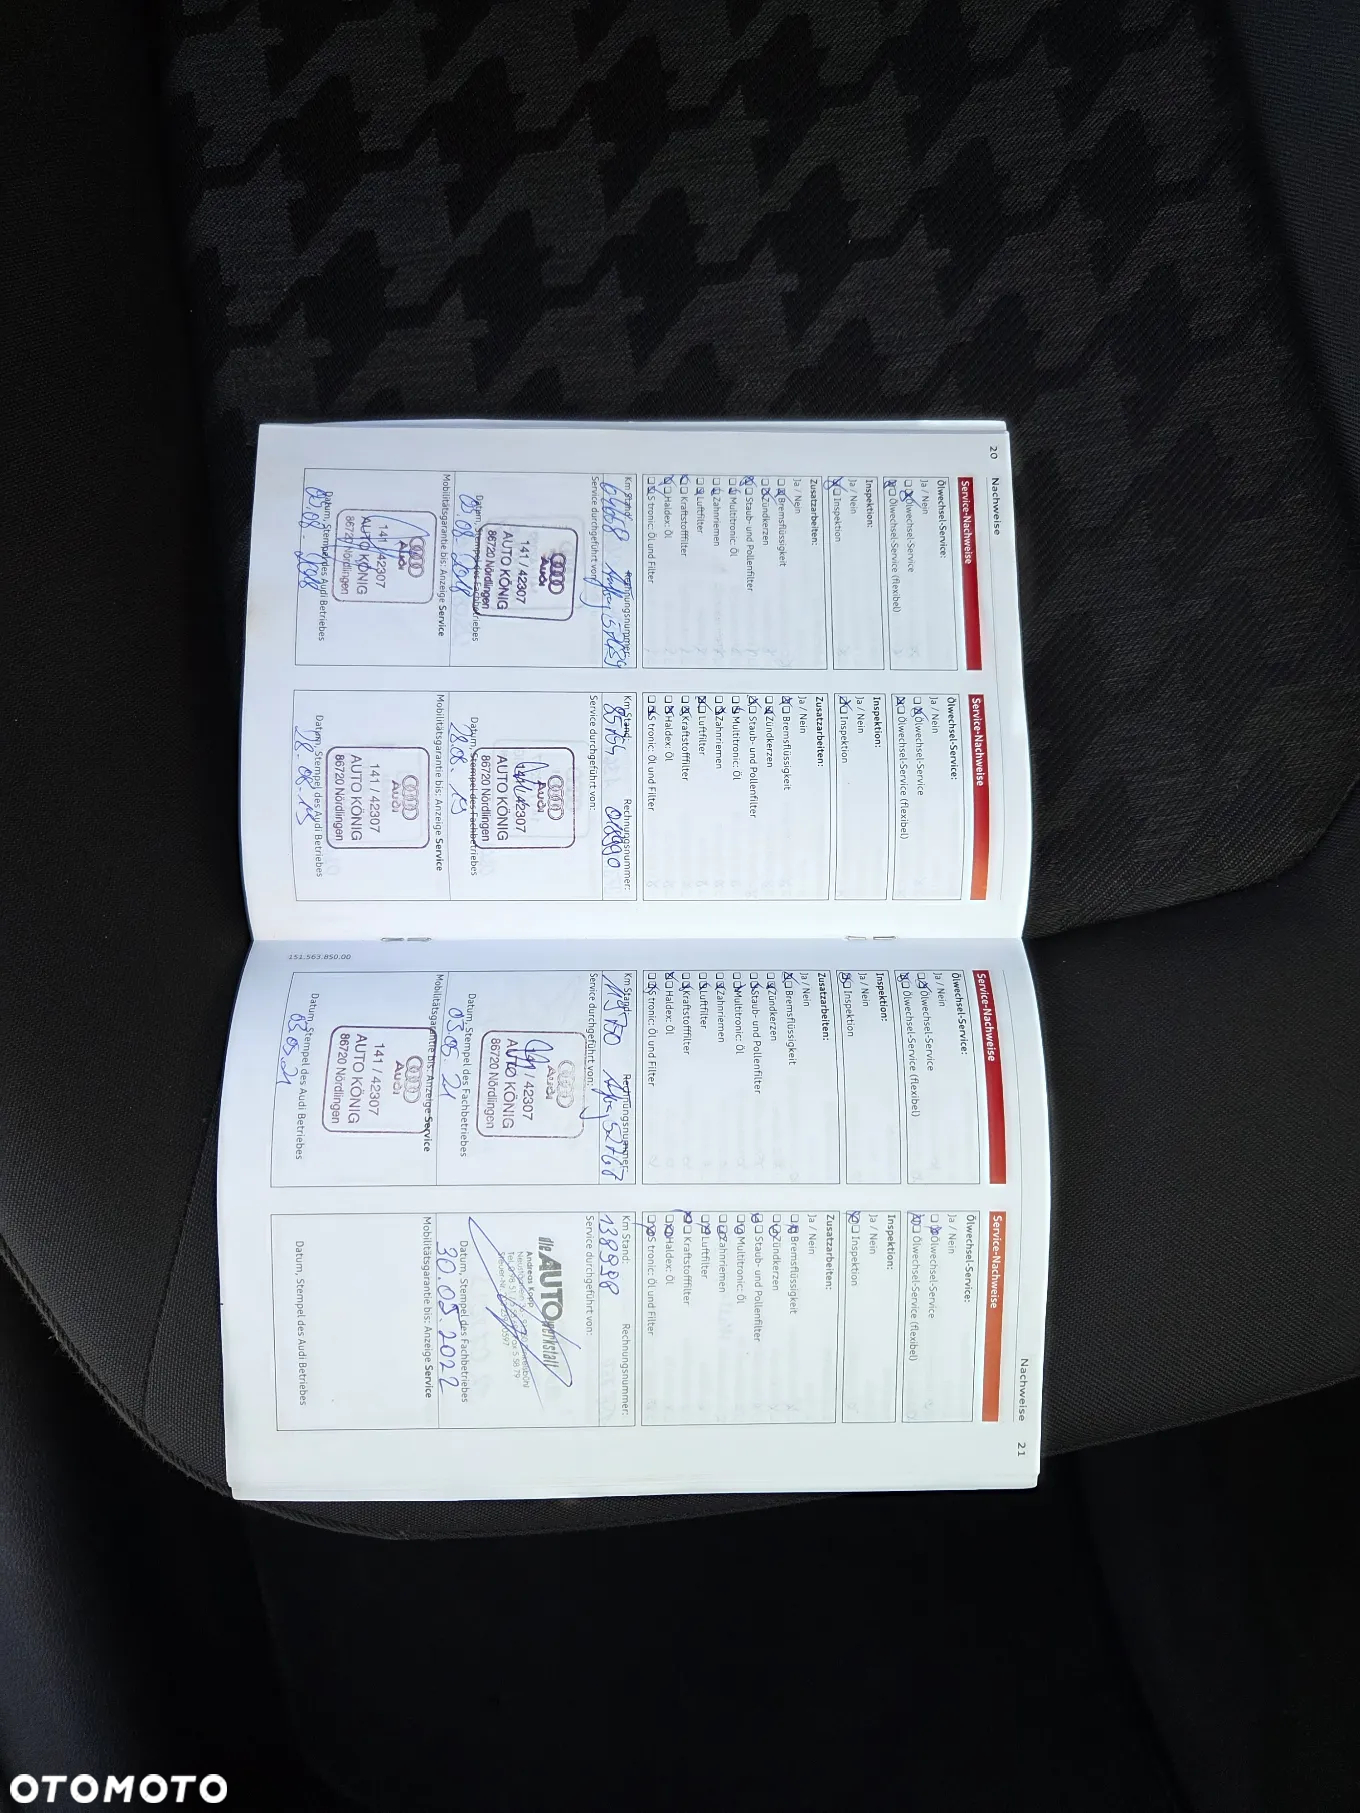 20
Nachweise
Service-Nachweise
Ölwechsel-Service:
Ja / Nein
Ölwechsel-Service
Ölwechsel-Service (flexibel)
Inspektion:
Ja / Nein
Inspektion
Zusatzarbeiten:
Ja / Nein
Bremsflüssigkeit
Zündkerzen
Staub- und Pollenfilter
Multitronic: Öl
Zahnriemen
Luftfilter
Kraftstofffilter
Haldex: Öl
S tronic: Öl und Filter
Km Stand: Rechnungsnummer:
Service durchgeführt von:
Audi
141 / 42307
AUTO KÖNIG
86720 Nördlingen
Datum, Stempel des Fachbetriebes
Mobilitätsgarantie bis: Anzeige Service
Audi
141 / 42307
AUTO KÖNIG
86720 Nördlingen
Datum, Stempel des Audi Betriebes
Service-Nachweise
Ölwechsel-Service:
Ja / Nein
Ölwechsel-Service
Ölwechsel-Service (flexibel)
Inspektion:
Ja / Nein
Inspektion
Zusatzarbeiten:
Ja / Nein
Bremsflüssigkeit
Zündkerzen
Staub- und Pollenfilter
Multitronic: Öl
Zahnriemen
Luftfilter
Kraftstofffilter
Haldex: Öl
S tronic: Öl und Filter
Km Stand: Rechnungsnummer:
Service durchgeführt von:
Audi
141 / 42307
AUTO KÖNIG
86720 Nördlingen
Datum, Stempel des Fachbetriebes
28.08.19
Mobilitätsgarantie bis: Anzeige Service
Audi
141 / 42307
AUTO KÖNIG
86720 Nördlingen
Datum, Stempel des Audi Betriebes
28.08.19
151.563.850.00
Nachweise
21
Service-Nachweise
Ölwechsel-Service:
Ja / Nein
Ölwechsel-Service
Ölwechsel-Service (flexibel)
Inspektion:
Ja / Nein
Inspektion
Zusatzarbeiten:
Ja / Nein
Bremsflüssigkeit
Zündkerzen
Staub- und Pollenfilter
Multitronic: Öl
Zahnriemen
Luftfilter
Kraftstofffilter
Haldex: Öl
S tronic: Öl und Filter
Km Stand: Rechnungsnummer:
115750
Service durchgeführt von:
Audi
141 / 42307
AUTO KÖNIG
86720 Nördlingen
Datum, Stempel des Fachbetriebes
03.05.21
Mobilitätsgarantie bis: Anzeige Service
Audi
141 / 42307
AUTO KÖNIG
86720 Nördlingen
Datum, Stempel des Audi Betriebes
03.05.21
Service-Nachweise
Ölwechsel-Service:
Ja / Nein
Ölwechsel-Service
Ölwechsel-Service (flexibel)
Inspektion:
Ja / Nein
Inspektion
Zusatzarbeiten:
Ja / Nein
Bremsflüssigkeit
Zündkerzen
Staub- und Pollenfilter
Multitronic: Öl
Zahnriemen
Luftfilter
Kraftstofffilter
Haldex: Öl
S tronic: Öl und Filter
Km Stand: Rechnungsnummer:
138998
Service durchgeführt von:
die AUTOwerkstatt
Andreas
Datum, Stempel des Fachbetriebes
30.05.2022
Mobilitätsgarantie bis: Anzeige Service
Datum, Stempel des Audi Betriebes
OTOMOTO